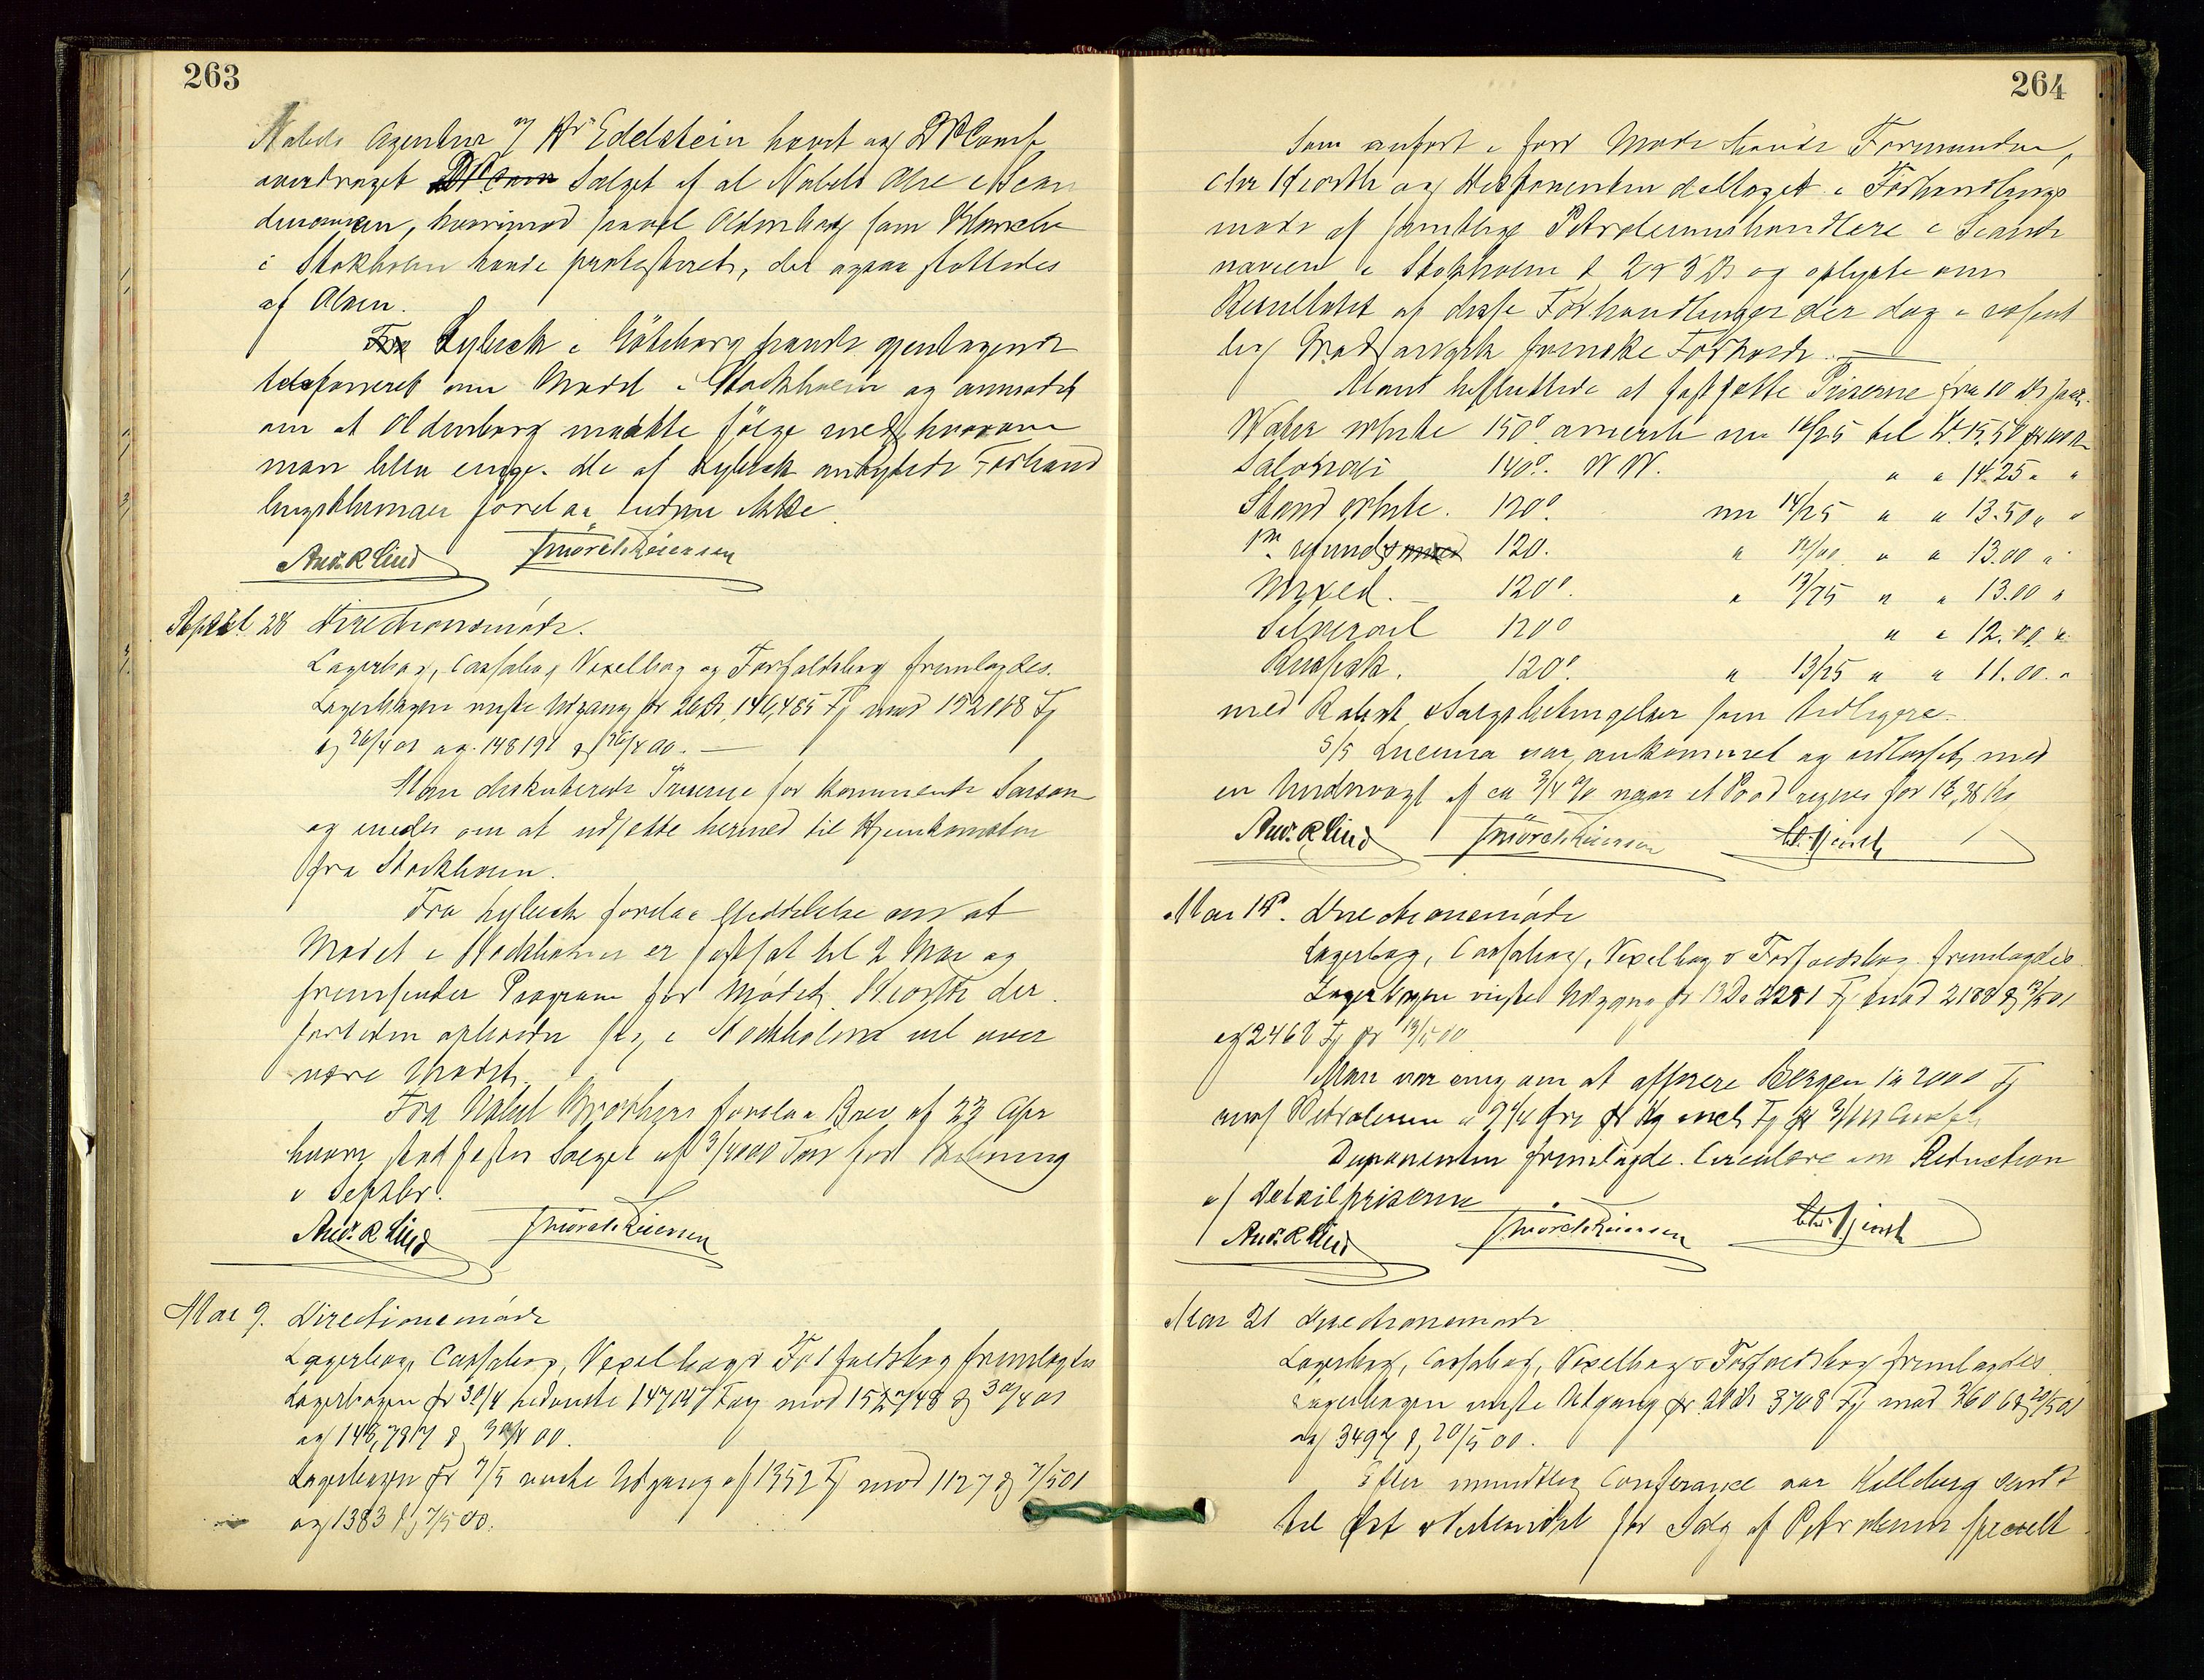 263
Nobels Agentur v/ Hr Edelstein havde og DPComp
overdraget DPComp Salget af al Nobels Olie i Scan
dinavien, hvorimod saavel Oldenborg som
i Stokholm havde protesteret, det ogsaa støttedes
af Olsen.
Fra Lybeck i Göteborg havde gjentagende
telefoneret om Mødet i Stockholm og anmodet
om at Oldenborg maatte følge med, hvorom
man blev enige. De af Lybeck antydede Forhand
lingsthemaer forelaa endnu ikke.
Andr. R Lind J Mörch Reiersen
April 28 Directionsmøde.
Lagerbog, Cassabog Vexelbog og Forfaldsbog fremlagdes.
Lagerbogen viste Udgang pr 26 ds, 146,485 Fj mod 152868 Fj
pr 26/4 01 og 148191 pr 26/4 00.
Man diskuterede Priserne for kommende Saison
og enedes om at udsætte hermed til Hjemkomsten
fra Stockholm.
Fra Lybeck forelaa Meddelelse om at
Mødet i Stockholm er fastsat til 2 Mai og
fremsender Program for Mødet. Hiorth der
for tiden opholder sig i Stockholm vil over
være Mødet.
Fra Nobel Brothers forelaa Brev af 23 Apr
hvori stadfæstes Salget af 3/4000 Tons for Levering
i Septbr.
Andr. R Lind J Mörch Reiersen
Mai 9. Directionsmøde
Lagerbog, Cassabog, Vexelbog & Forfaldsbog fremlagdes
Lagerbogen pr 30/4 udviste 147147 Fag mod 152748 pr 30/4 01
og 148,787 pr 30/4 00.
Lagerbogen pr 7/5 viste Udgang af 1352 Fj mod 1127 pr 7/5 01
og 1383 pr 7/5 00.
264
Som anført i forr Møde havde Formanden,
Chr Hiorth og Disponenten deltaget i Forhandlings
møde af samtlige Petroleumshandlere i Scandi
navien i Stokholm d 2 & 3 ds og oplyste om
Resultatet af disse Forhandlinger der dog i væsent
lig Grad angik svenske Forhold.
Man besluttede at fastsætte Priserne fra 10 ds saa:
Water white 150° amerik nu 16/25 til Kr. 15.50 pr 100 Kg
Salonoli 140° W W. " " 14.25 " "
Stand white. 120° nu 14/25 " " 13.50 " "
Pr refined 120. " 14/00 " " 13.00 "
Mixed. 120°. " 13/75 " " 13.00 "
Silveroil 120° " " 12.00 "
Russisk. 120° " 13/25 " " 11.00 "
med Rabat & Salgsbetingelser som tidligere.
S/S Lucerna var ankommet og udlosset, med
en Undervægt af ca 3/4 % naar et Pood regnes for 16,38 Kg
Andr. R Lind J Mörch Reiersen Chr. Hjorth
Mai 14. Directionsmøde
Lagerbog, Cassabog, Vexelbog & Forfaldsbog fremlagdes
Lagerbogen viste Udgang pr 13 Ds 2251 Fj mod 2188 pr 13/5 01
og 2468 Fj pr 13/5 00
Man var enig om at offerere Bergen ca 2000 Fj
Petroleum a 9 1/4 Øre pr Kg incl Fj pr
Disponenten fremlagde Circulære om Reduction
af Detailpriserne
Andr. R Lind J Mörch Reiersen Chr. Hjorth
Mai 21 Directionsmøde
Lagerbog, Cassabog, Vexelbog & Forfaldsbog fremlagdes
Lagerbogen viste Udgang pr 20 ds 3708 Fj mod 3606 pr 20/5 01
og 3497 pr 20/5 00.
Efter mundtlig Conferance var Kulleberg sendt
til Øst & Vestlandet for Salg af Petroleum specielt